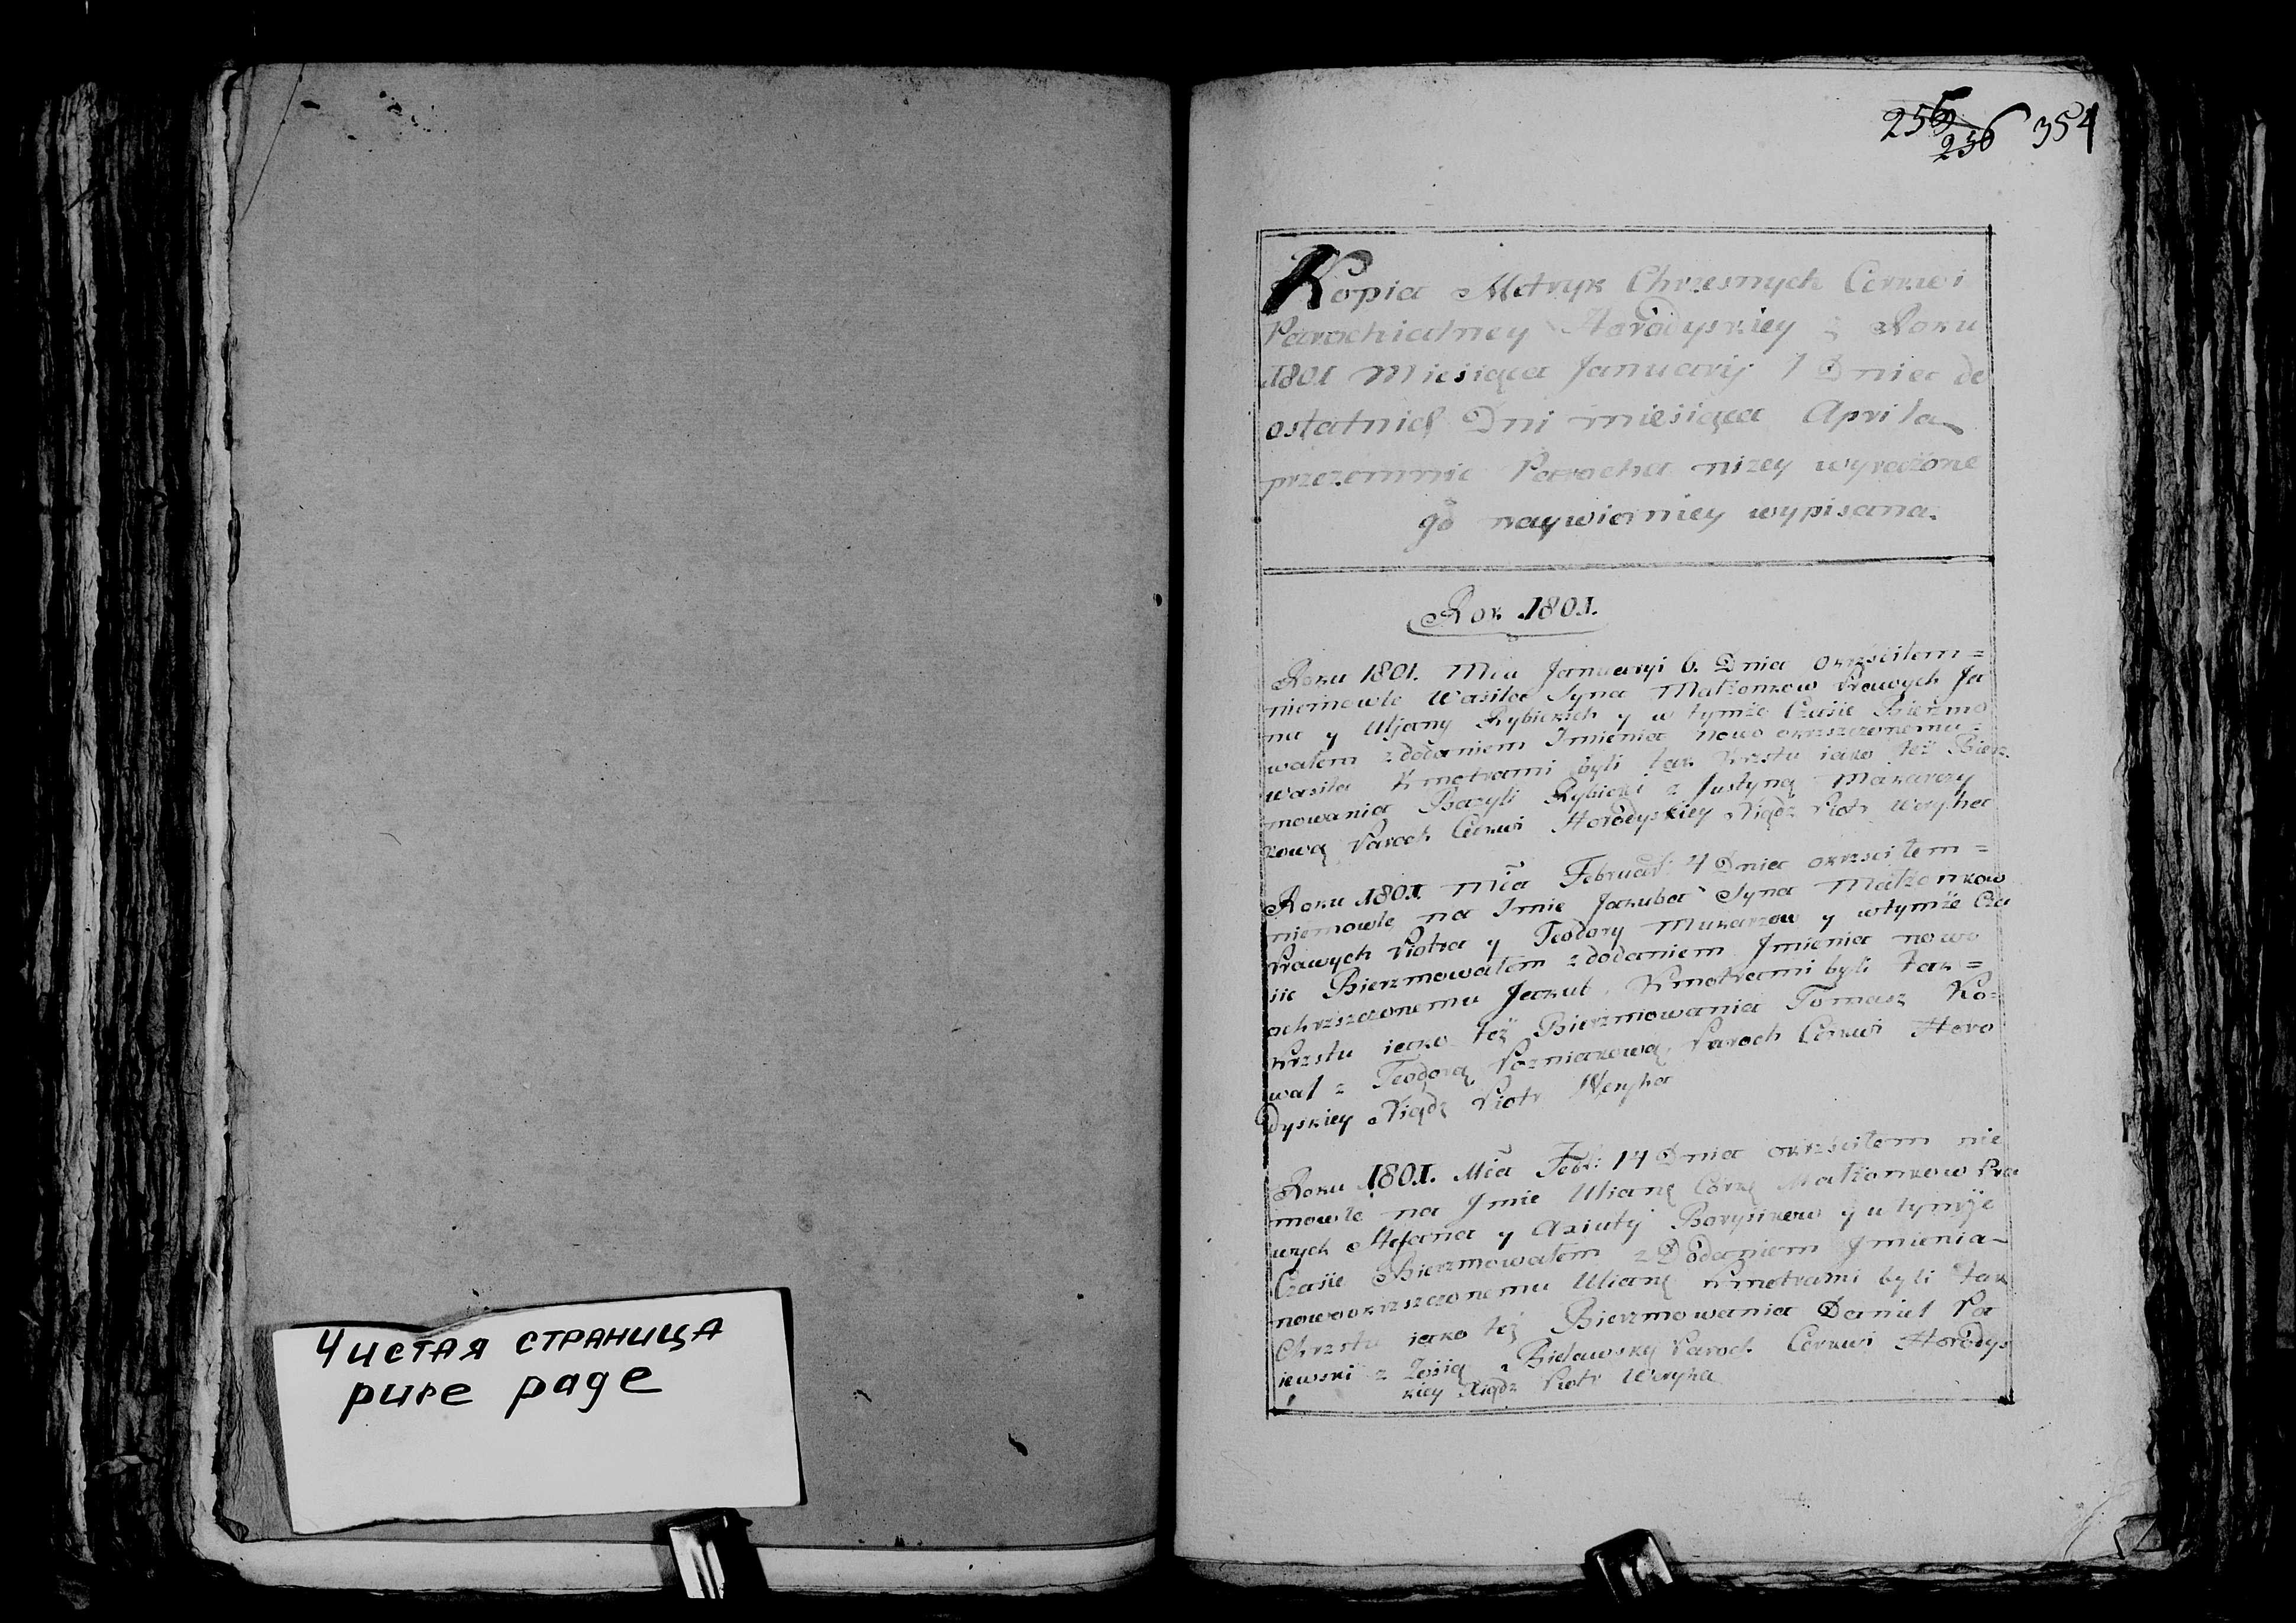 Чистая страница
pure page
255
256 354
Kopia Metryk Chrzesnych Cerkwi
Parochialney Horodyskiey z Roku
1801 Miesiąca Januarij 1 Dnia do
ostatnich Dni miesiąca Aprila
przezemnie Parocha nizey wyrażone
go naywierniey wypisana.
Rok 1801.
Roku 1801. Mca Januaryi 6. Dnia okrzsciłem =
niemowle Wasila Syna Małżonkow Prawych Ja
na y Uljany Rybickich y w tymże Czasie Bierzmo
wałem z dodaniem Imienia nowo okrzszczonemu =
Wasila Kmotrami byli tak Krzstu iako też Bierz
mowania Bazyli Rybicki z Justyną Makarczy
kową Paroch Cerkwi Horodyskiey Xiądz Piotr Weryha
Roku 1801. Mca Februar: 4 Dnia okrzsciłem =
niemowle na Imie Jakuba Syna Małżonkow
Prawych Piotra y Teodory Mukarzow y wtymże Cza
sie Bierzmowałem z dodaniem Imienia nowo
ochrzszczonemu Jakub. Kmotrami byli tak =
Krzstu iako też Bierzmowania Tomasz Ko=
wal z Teodorą Pozniakową, Paroch Cerkwi Horo
dyskiey Xiądz Piotr Weryha
Roku 1801. Mca Febr: 14 Dnia okrzsciłem nie
mowle na Jmie Ulianę Córkę Małżonkow Pra
wych Stefana y Axiuty Borysikow y w tymże
Czasie Bierzmowałem z Dodaniem Jmienia
nowookrzszczonemu Ulianę Kmotrami byli tak
Chrzstu iako też Bierzmowania Daniel Pa
iewski z Zosią Bielawską Paroch Cerkwi Horodys
kiey Xiądz Piotr Weryha